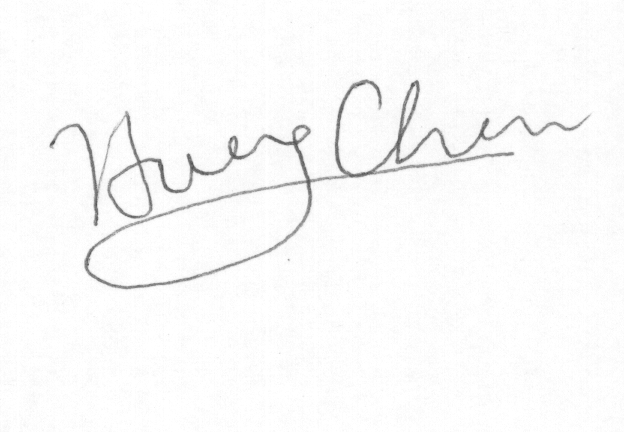 Hueng Chen